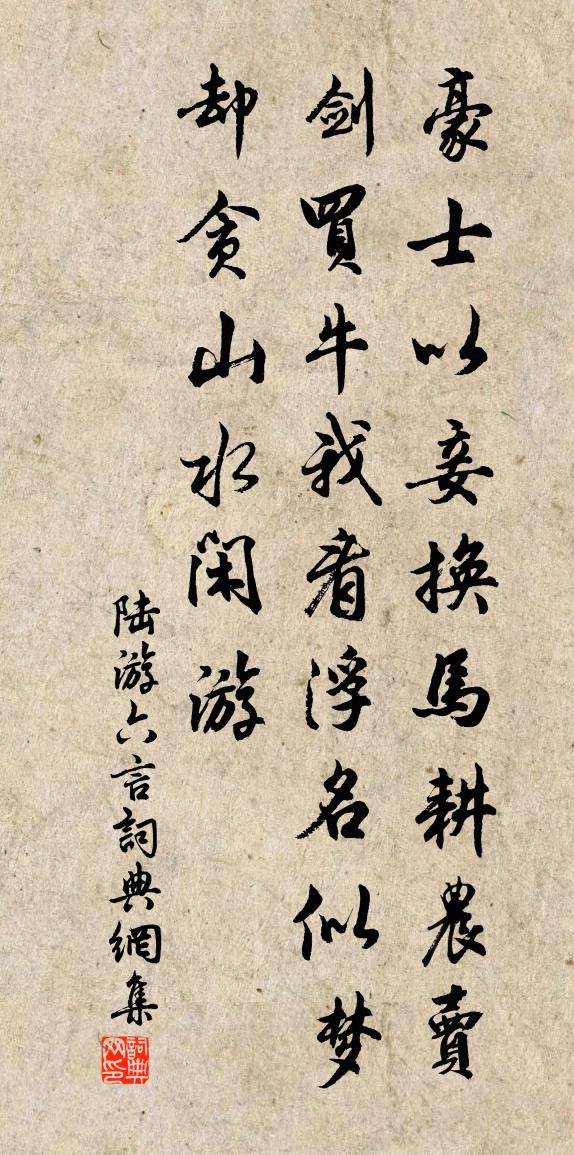 豪士以妾換馬耕農賣
劍買牛我看浮名似梦
却貪山水閑游
陆游六言詞典網集
詞典網印